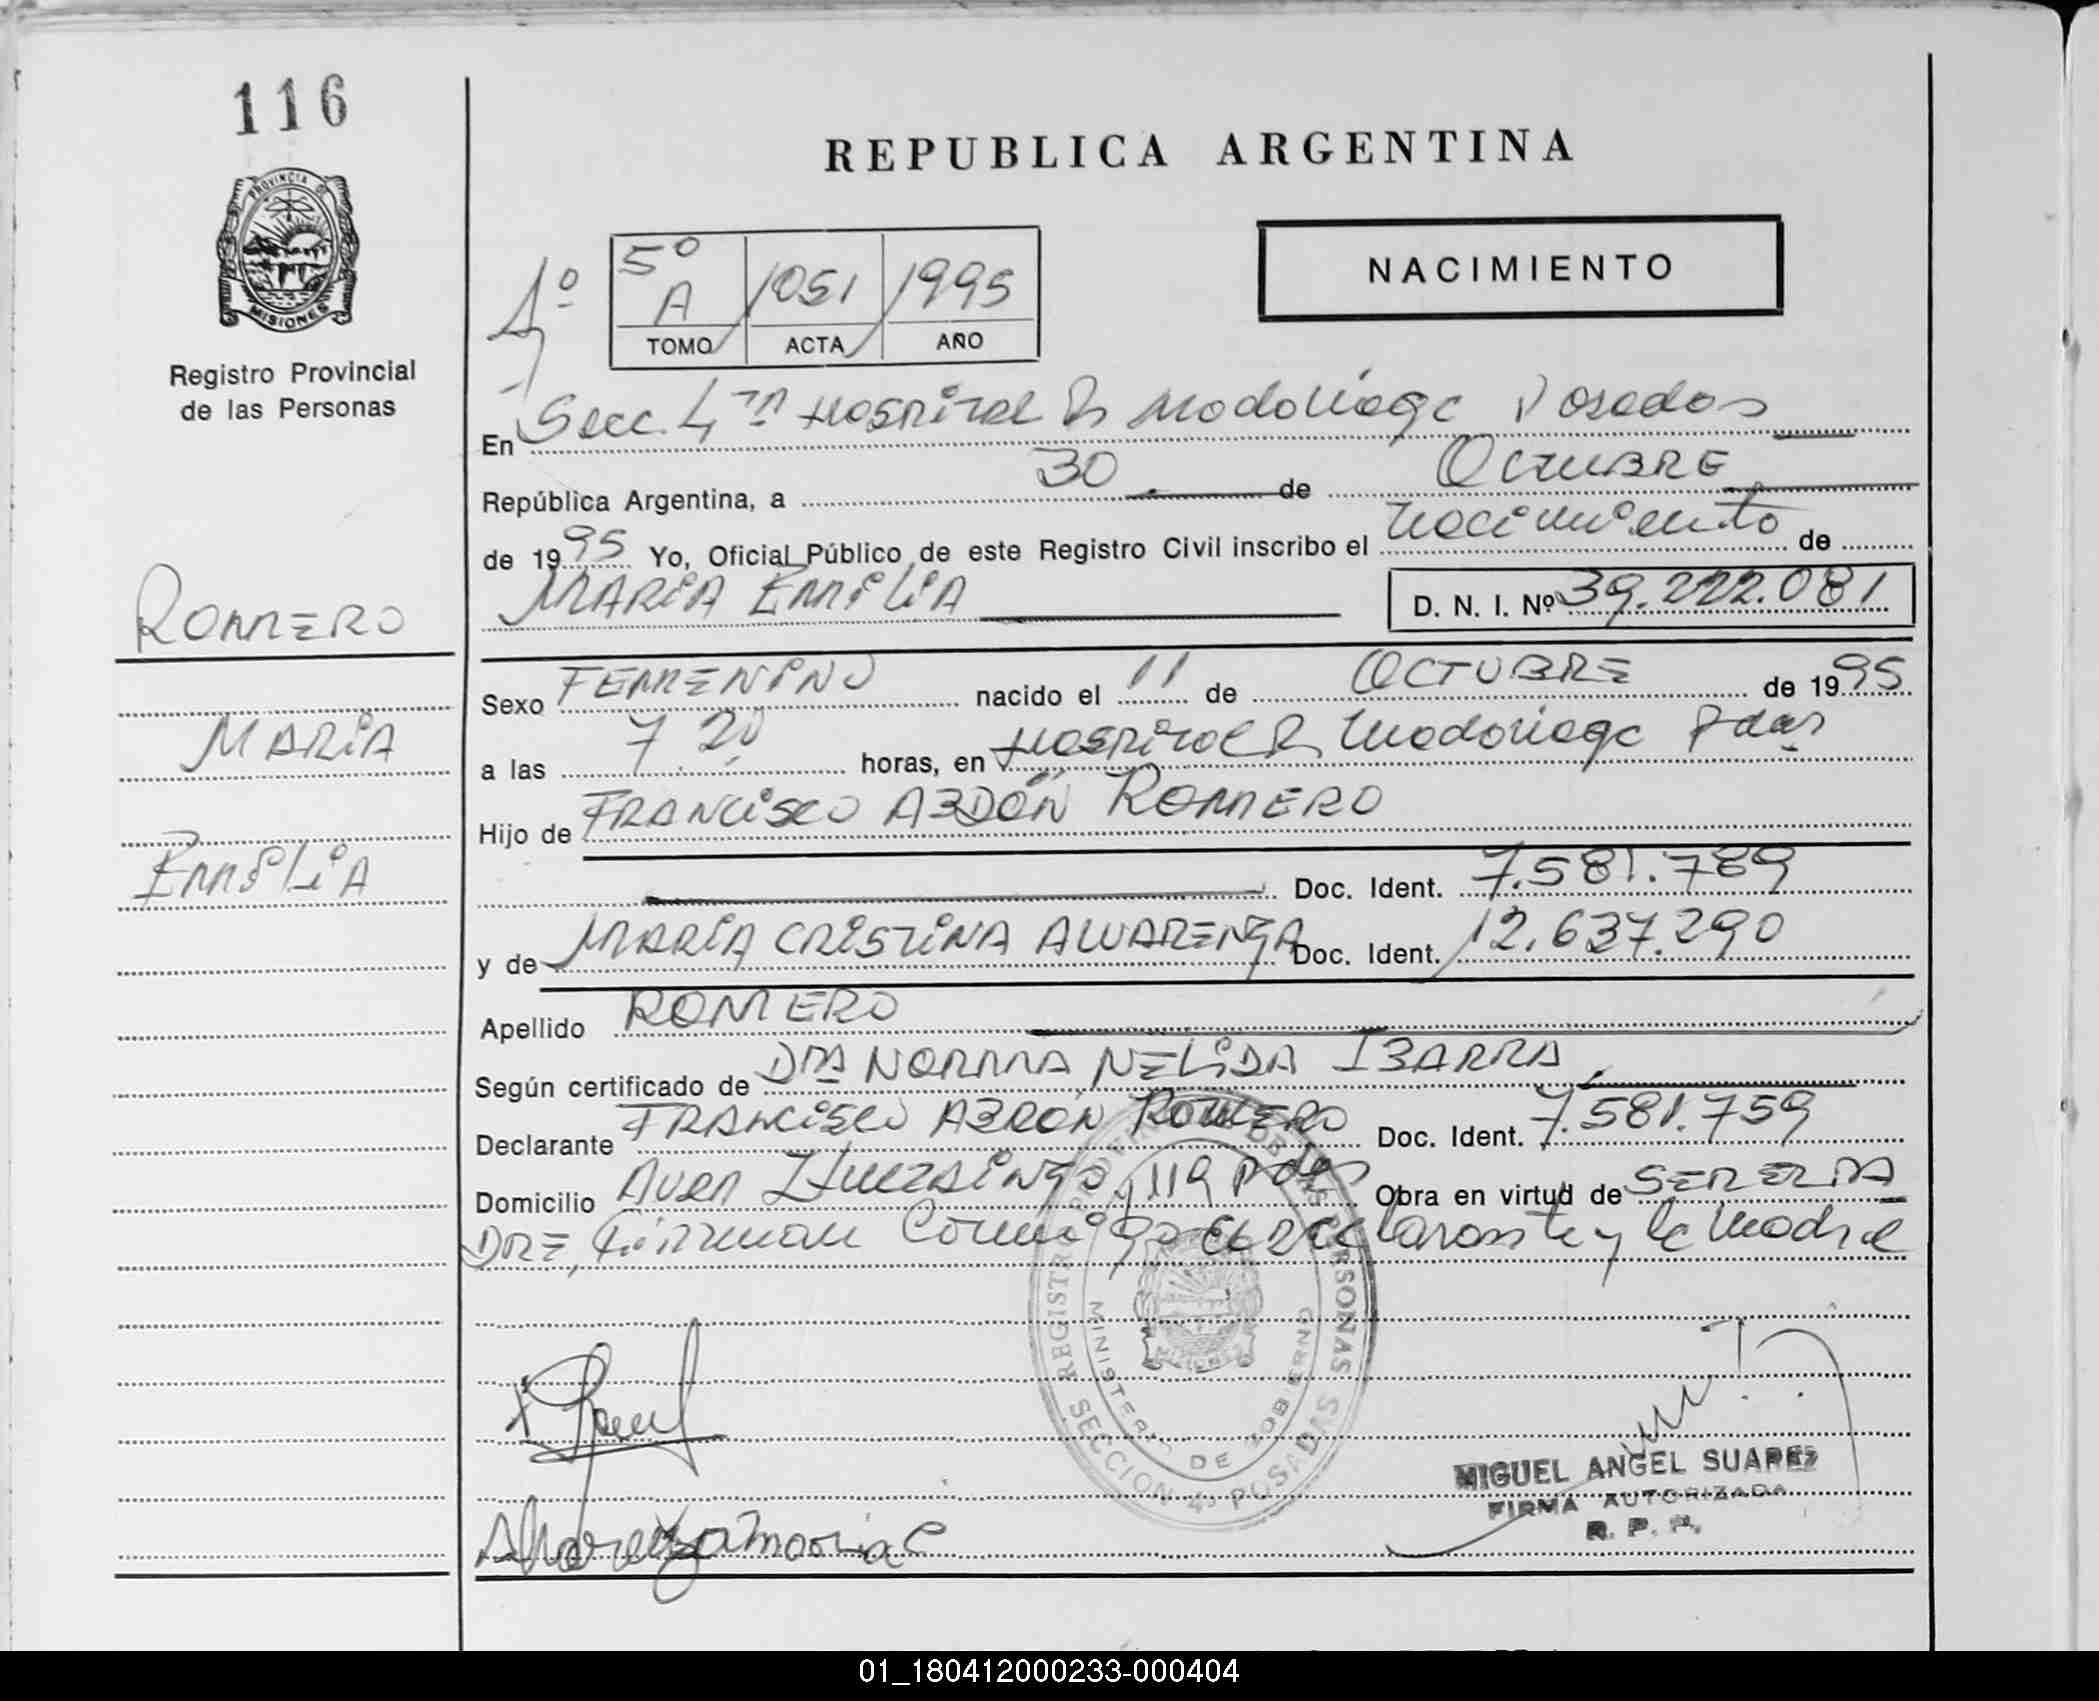 116
PROVINCIA DE
MISIONES
Registro Provincial
de las Personas
REPUBLICA ARGENTINA
NACIMIENTO
5º
A 1051 1995
TOMO ACTA AÑO
En Secc. 4ta Hospital R Madariaga Posadas
República Argentina, a 30 de Octubre
de 1995 Yo, Oficial Público de este Registro Civil inscribo el nacimiento de
MARIA EMILIA D. N. I. Nº 39.222.081
ROMERO
MARIA
EMILIA
Sexo FEMENINO nacido el 11 de OCTUBRE de 1995
a las 7 20 horas, en Hospital R Madariaga Pdas
Hijo de FRANCISCO ABDON ROMERO
Doc. Ident. 7.581.789
y de MARIA CRISTINA ALVARENGA Doc. Ident. 12.637.290
Apellido ROMERO
Según certificado de Dra NORMA NELIDA IBARRA
Declarante FRANCISCO ABDON ROMERO Doc. Ident. 7.581.759
Domicilio Avda 119 Pdas Obra en virtud de SER EL PA
DRE, Firman conmigo el declarante y la madre
REGISTRO PROVINCIAL DE LAS PERSONAS
MINISTERIO DE GOBIERNO
SECCION 4ª POSADAS
Alvarenga Maria C
MIGUEL ANGEL SUAREZ
FIRMA AUTORIZADA
R. P. P.
01_180412000233-000404